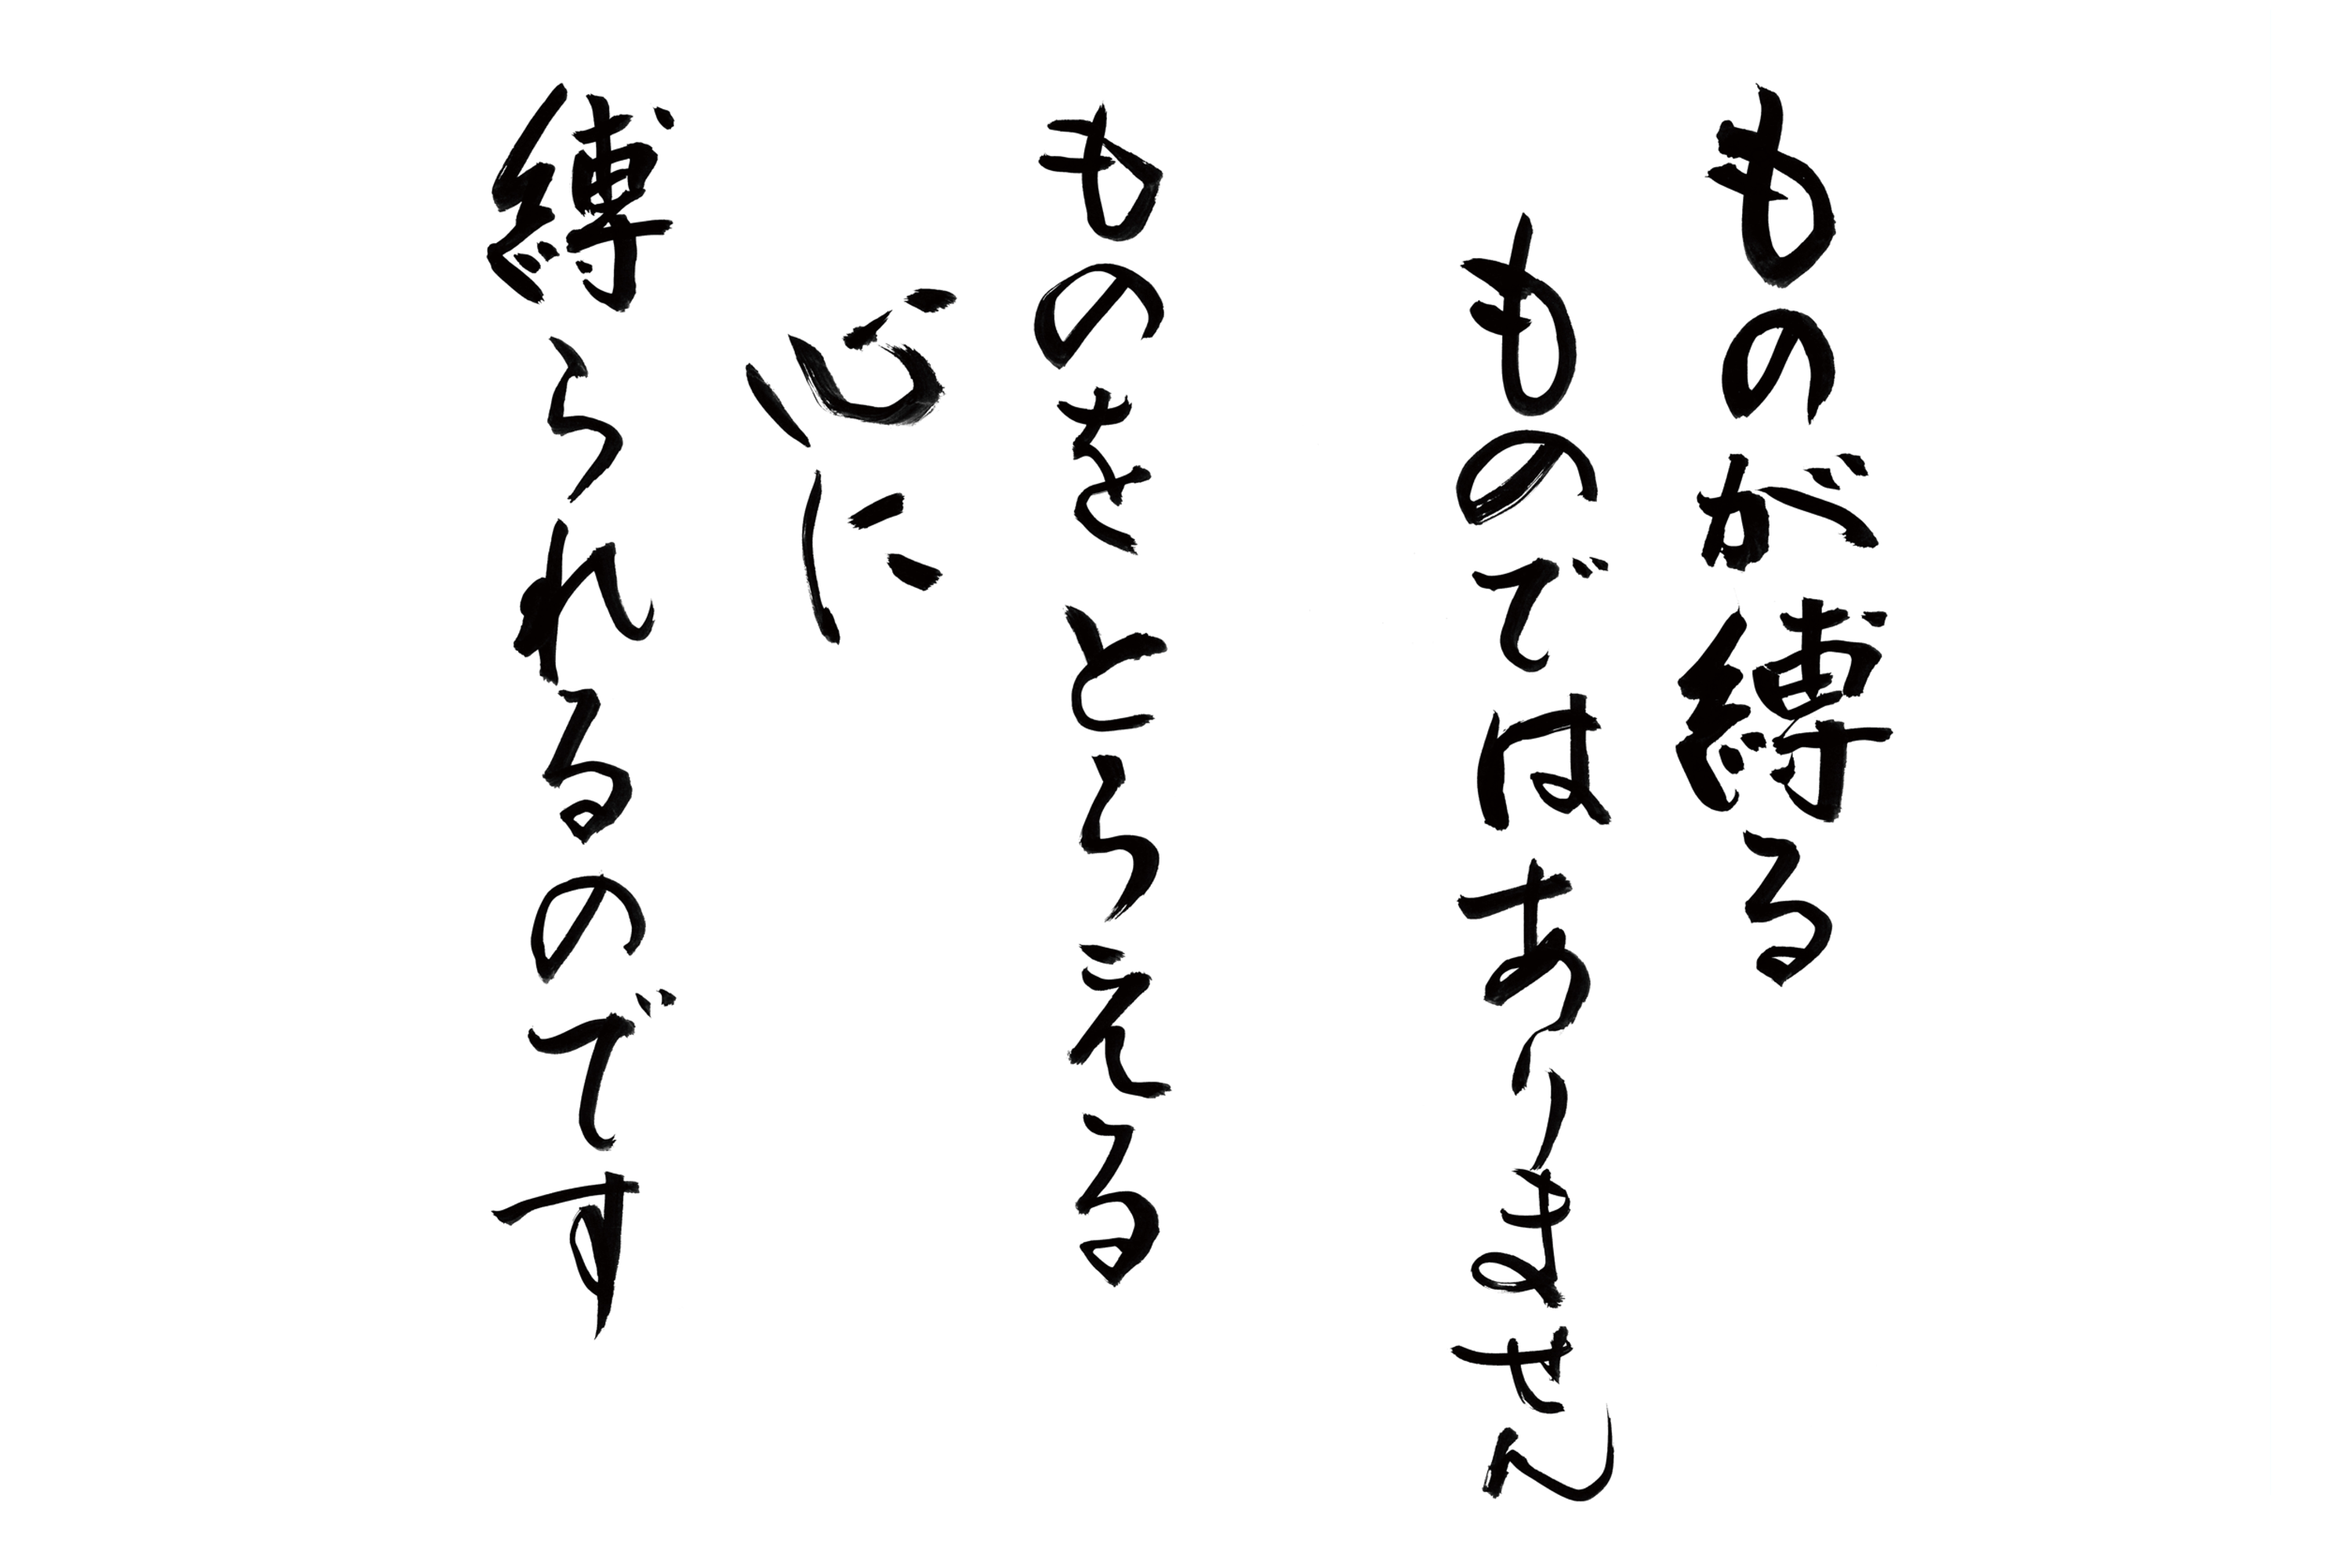 ものが縛る
ものではありません
ものをとらえる
心に
縛られるのです